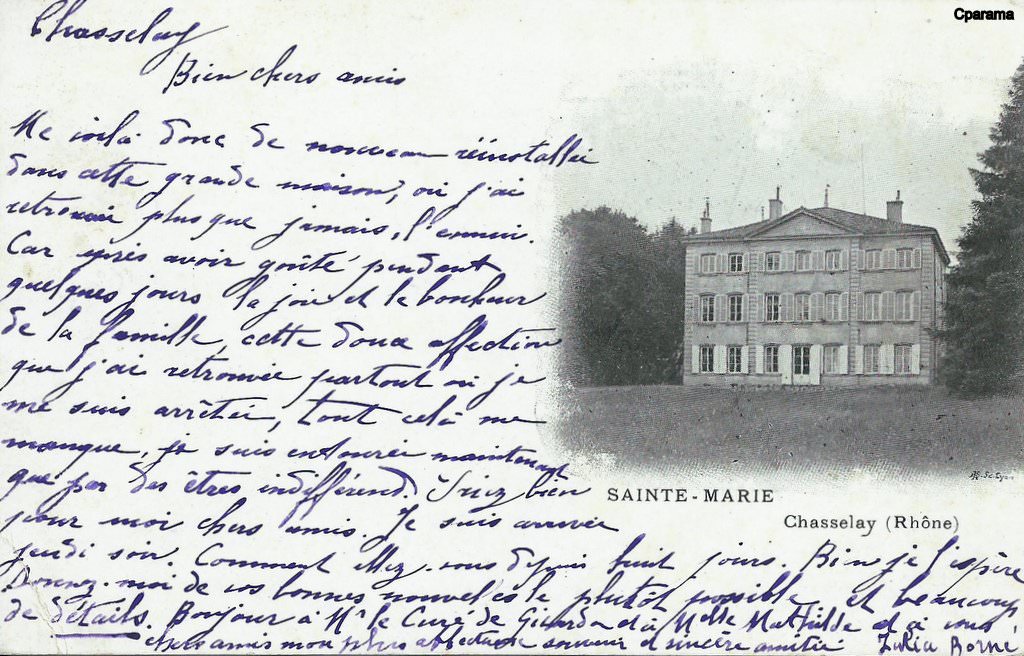 Cparama
Chasselay
Bien chers amis
Me voilà donc de nouveau réinstallée
dans cette grande maison, où j'ai
retrouvé plus que jamais, l'ennui.
Car après avoir goûté pendant
quelques jours la joie et le bonheur
de la famille, cette douce affection
que j'ai retrouvée partout où je
me suis arrêtée, tout celà me
manque, je suis entourée maintenant
que par des êtres indifférend. Priez bien
pour moi chers amis. Je suis arrivée
jeudi soir. Comment allez-vous depuis huit jours. Bien je l'espère
Donnez-moi de vos bonnes nouvelles le plutôt possible et beaucoup
de détails. Bonjour à Mr le Curé de et à Melle Mathilde et à vous
chers amis mon plus affectueux souvenir et sincère amitié Julia Borné
SAINTE-MARIE
Chasselay (Rhône)